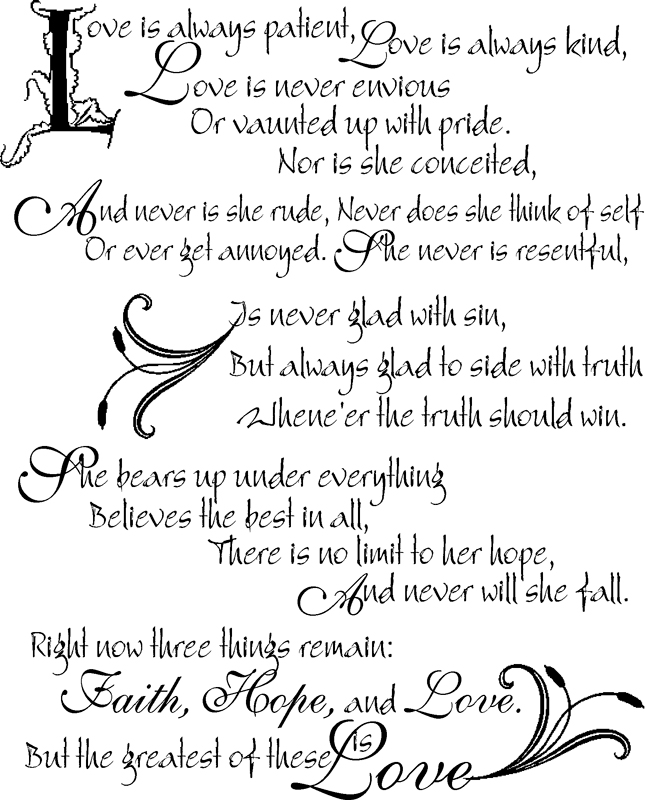 Love is always patient, Love is always kind,
Love is never envious
Or vaunted up with pride.
Nor is she conceited,
And never is she rude, Never does she think of self
Or ever get annoyed. She never is resentful,
Is never glad with sin,
But always glad to side with truth
Whene'er the truth should win.
She bears up under everything
Believes the best in all,
There is no limit to her hope,
And never will she fall.
Right now three things remain:
Faith, Hope, and Love.
But the greatest of these is Love